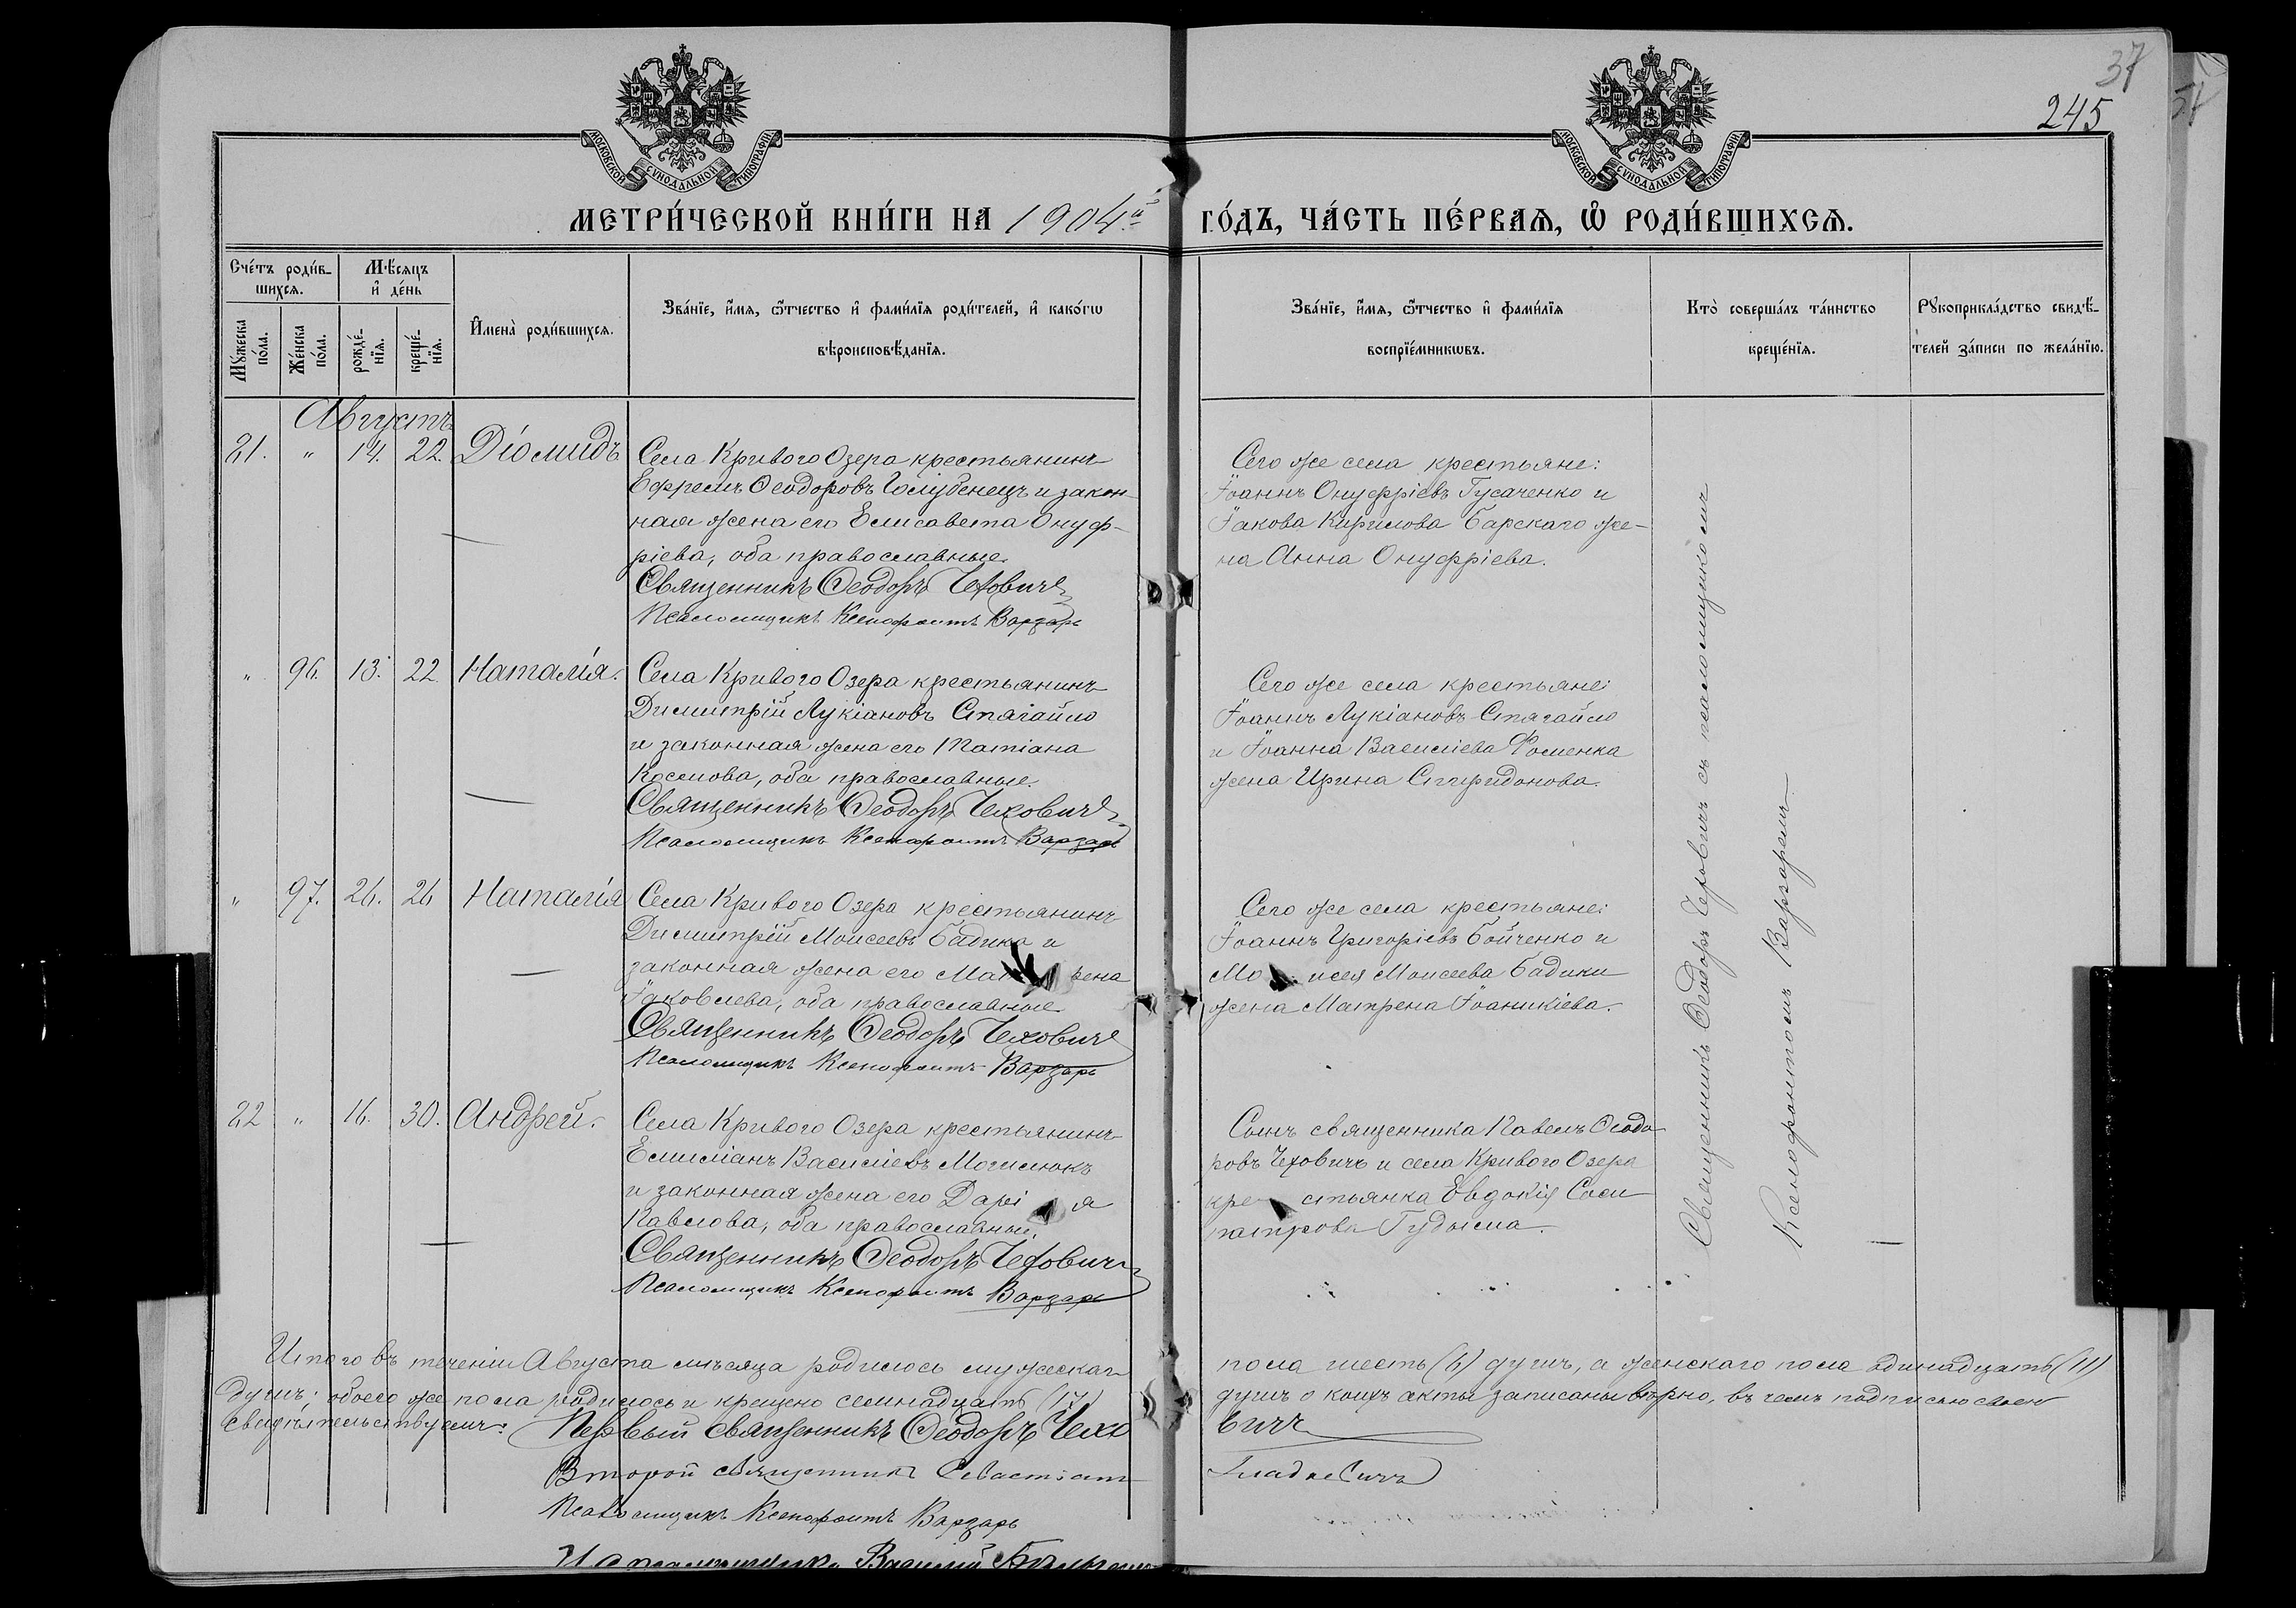 37
245
МОСКОВСКОЙ СѴНОДАЛЬНОЙ ТИПОГРАФІИ
МОСКОВСКОЙ СѴНОДАЛЬНОЙ ТИПОГРАФІИ
МЕТРИ́ЧЕСКОЙ КНИ́ГИ НА 1904й ГО́ДЪ, ЧА́СТЬ ПЕ́РВАѦ, Ѽ РОДИ́ВШИХСѦ.
Сче́тъ роди́в-
шихсѧ.
Мѣ́сѧцъ
и҆ де́нь
Мꙋ́жеска
по́ла.
Же́нска
по́ла.
рожде́-
нїѧ.
креще́-
нїѧ.
И҆мена̀ роди́вшихсѧ.
Зва́нїе, и҆́мѧ, ѻ҆́тчество и҆ фами́лїѧ роди́телей, и҆ како́гѡ
вѣроисповѣ́данїѧ.
Зва́нїе, и҆́мѧ, ѻ҆́тчество и҆ фами́лїѧ
воспрїе́мникѡвъ.
Кто̀ соверша́лъ та́инство
креще́нїѧ.
Рꙋкоприкла́дство свидѣ́-
телей за́писи по жела́нїю.
Августъ
21. " 14. 22. Діомидъ
Села Кривого Озера крестьянинъ
Ефремъ Ѳеодоровъ Голубенецъ и закон-
ная жена его Елисавета Онуф-
ріева, оба православные.
Священникъ Ѳеодоръ Чеховичъ
Псаломщикъ Ксенофонтъ Варзарь
Сего же села крестьяне:
Іоаннъ Онуфріевъ Гусаченко и
Іакова Кирилова Барскаго же-
на Анна Онуфріева.
" 96. 13. 22. Наталія.
Села Кривого Озера крестьянинъ
Димитрій Лукіановъ Стягайло
и законная жена его Татіана
Космова, оба православные.
Священникъ Ѳеодоръ Чеховичъ
Псаломщикъ Ксенофонтъ Варзарь
Сего же села крестьяне:
Іоаннъ Лукіановъ Стягайло
и Іоанна Василіева Фоменка
жена Ирина Спиридонова.
" 97. 26. 26 Наталія
Села Кривого Озера крестьянинъ
Димитрій Моисеевъ Бадика и
законная жена его Мат рена
Іаковлева, оба православные
Священникъ Ѳеодоръ Чеховичъ
Псаломщикъ Ксенофонтъ Варзарь
Сего же села крестьяне:
Іоаннъ Григоріевъ Бойченко и
Мо исея Моисеева Бадики
жена Матрена Іоаникіева.
22 " 16. 30. Андрей.
Села Кривого Озера крестьянинъ
Емиліанъ Василіевъ Могилюкъ
и законная жена его Дарі я
Павлова, оба православные.
Священникъ Ѳеодоръ Чеховичъ
Псаломщикъ Ксенофонтъ Варзарь
Сынъ священника Павелъ Ѳеодо-
ровъ Чеховичъ и села Кривого Озера
кре стьянка Евдокія Соси-
патрова Гудыма.
Священникъ Ѳеодоръ Чеховичъ съ псаломщикомъ
Ксенофонтомъ Варзаремъ
Итого въ теченіи Августа мѣсяца родилось мужескаго пола шесть (6) душъ, а женскаго пола одинадцать (11)
душъ; обоего же пола родилось и крещено семнадцать (17) душъ о коихъ акты записаны вѣрно, въ чемъ подписью своею
свидѣтельствуемъ: Первый священникъ Ѳеодоръ Чеховичъ
Второй священникъ Севастіанъ Гладкевичъ
Псаломщикъ Ксенофонтъ Варзарь
И д псаломщика Василій